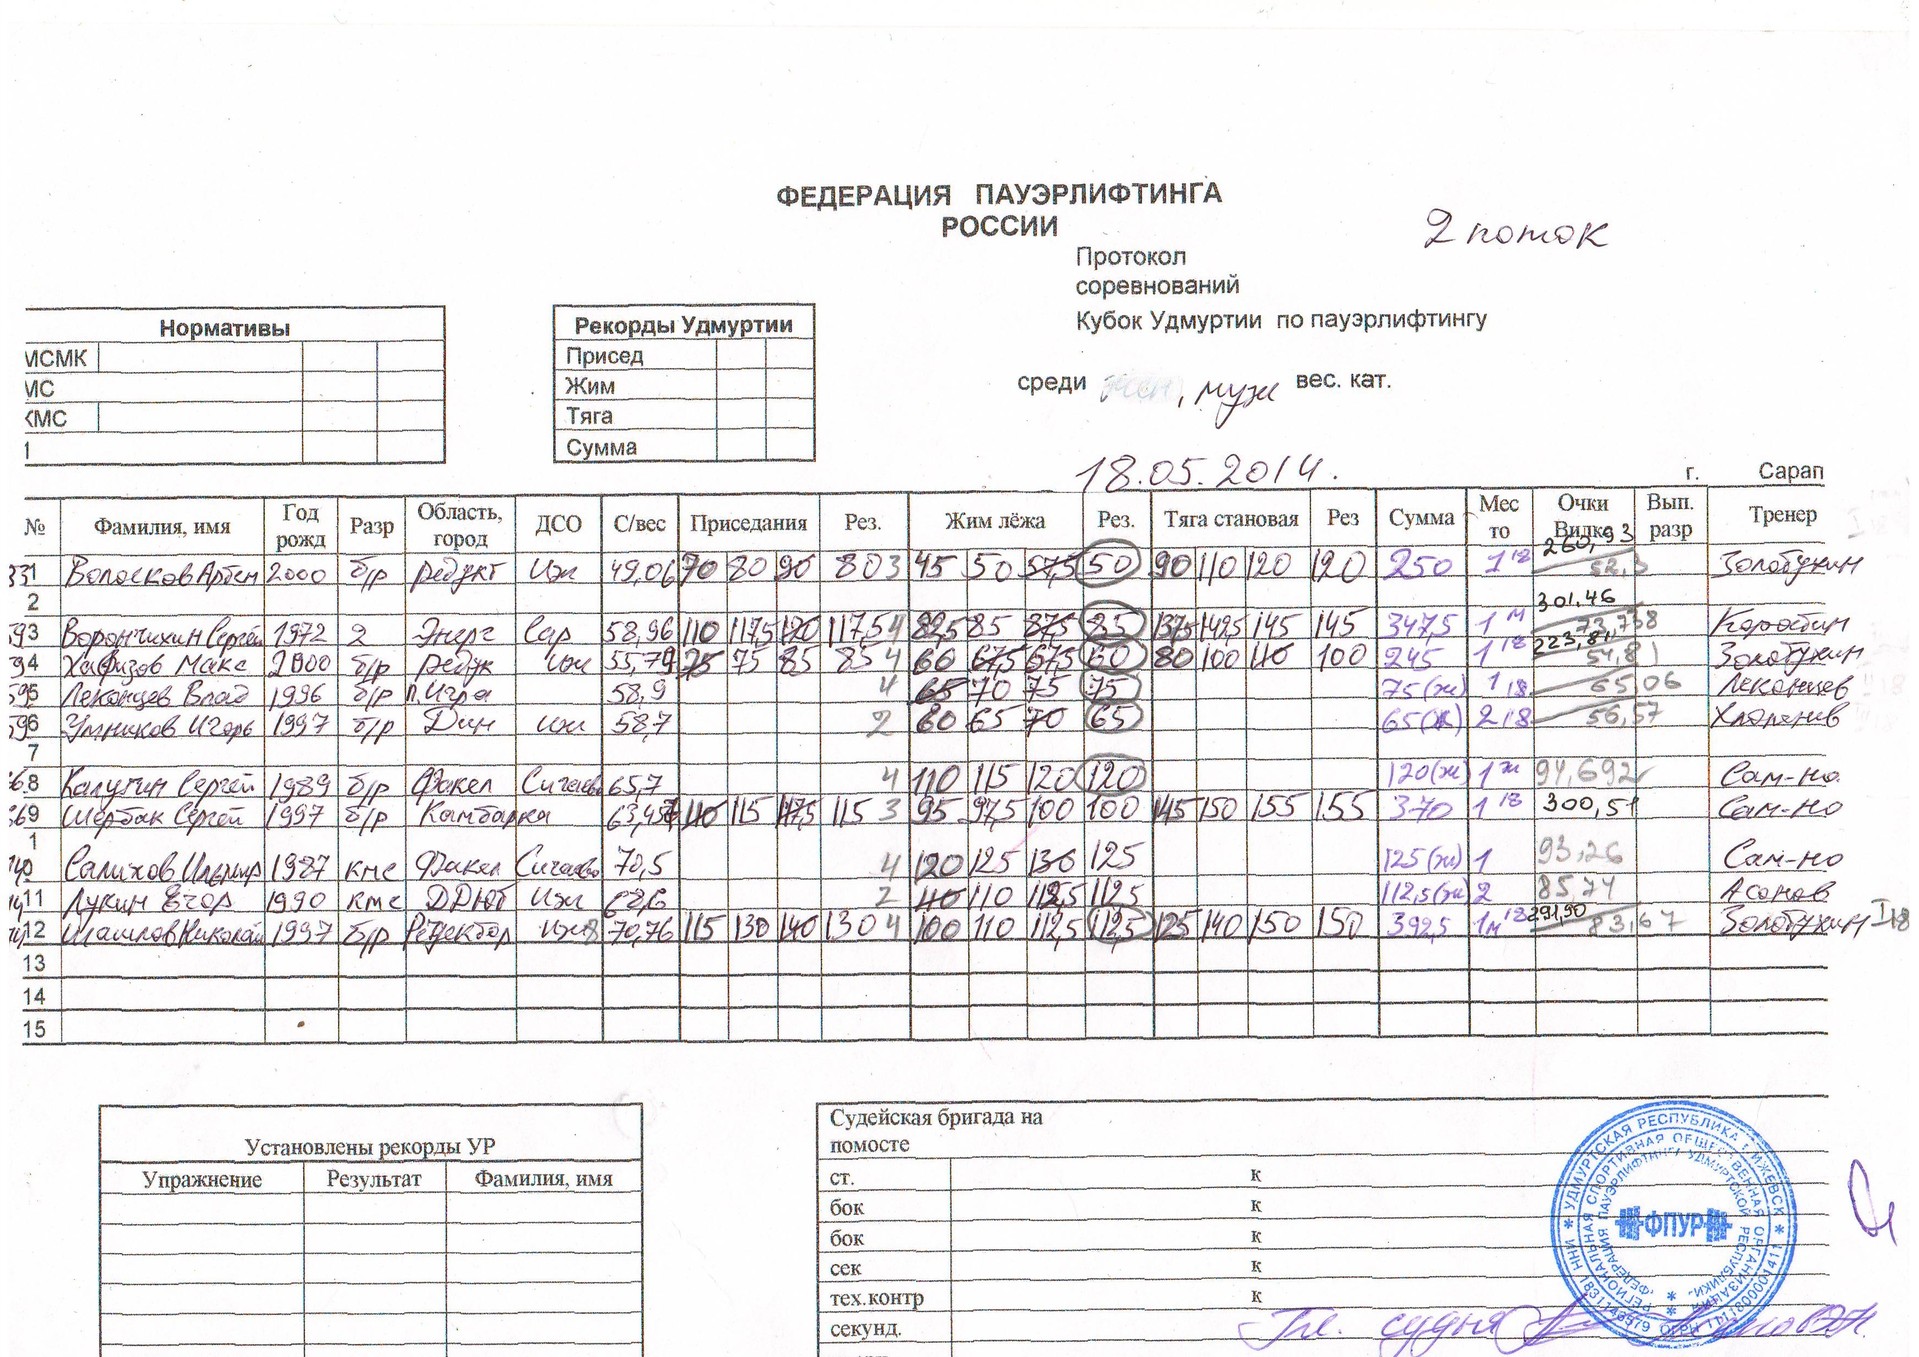 ФЕДЕРАЦИЯ ПАУЭРЛИФТИНГА
РОССИИ
2 поток
Протокол
соревнований
Кубок Удмуртии по пауэрлифтингу
среди , муж вес. кат.
Нормативы
МСМК
МС
КМС
1
Рекорды Удмуртии
Присед
Жим
Тяга
Сумма
18.05.2014. г. Сарап
№ Фамилия, имя Год рожд Разр Область, город ДСО С/вес Приседания Рез. Жим лёжа Рез. Тяга становая Рез Сумма Мес то Очки Вилкс Вып. разр Тренер
1 Волосков Артем 2000 б/р редукт Иж 49,06 70 80 90 80 3 45 50 57,5 50 90 110 120 120 250 1 18 260,93 52,3 Золотухин
2
3 Ворончихин Сергей 1972 2 Энерг Сар 58,96 110 117,5 120 117,5 4 82,5 85 87,5 85 137,5 142,5 145 145 347,5 1 м 301,46 73,738 Коробкин
4 Хафизов Макс 2000 б/р редук иж 55,79 75 75 85 85 4 60 67,5 67,5 60 80 100 110 100 245 1 18 223,81 54,81 Золотухин
5 Леконцев Влад 1996 б/р п.Игра 58,9 4 65 70 75 75 75(ж) 1 18 65,06 Леконцев
6 Умников Игорь 1997 б/р Дин иж 58,7 2 60 65 70 65 65(ж) 2 18 56,57
7
8 Калугин Сергей 1989 б/р Факел Сигаево 65,7 4 110 115 120 120 120(ж) 1 ж 94,692 Сам-но
9 Щербак Сергей 1997 б/р Камбарка 110 115 117,5 115 3 95 97,5 100 100 145 150 155 155 370 1 18 300,51 Сам-но
1
0 Салихов Ильмир 1987 кмс Факел Сигаево 70,5 4 120 125 130 125 125(ж) 1 93,26 Сам-но
11 Лукин Егор 1990 кмс ДДЮТ Иж 68,6 2 110 110 112,5 112,5 112,5(ж) 2 85,74 Асанов
12 Николай 1997 б/р Редуктор Иж 8 70,76 115 130 140 130 4 100 110 112,5 112,5 125 140 150 150 392,5 1м 18 291,90 83,67 Золотухин I 18
13
14
15
Установлены рекорды УР
Упражнение Результат Фамилия, имя
Судейская бригада на
помосте
ст. к
бок к
бок к
сек к
тех.контр к
секунд.
УДМУРТСКАЯ РЕСПУБЛИКА г. ИЖЕВСК
РЕГИОНАЛЬНАЯ СПОРТИВНАЯ ОБЩЕСТВЕННАЯ ОРГАНИЗАЦИЯ
ФЕДЕРАЦИЯ ПАУЭРЛИФТИНГА УДМУРТСКОЙ РЕСПУБЛИКИ
ФПУР
Гл. судья